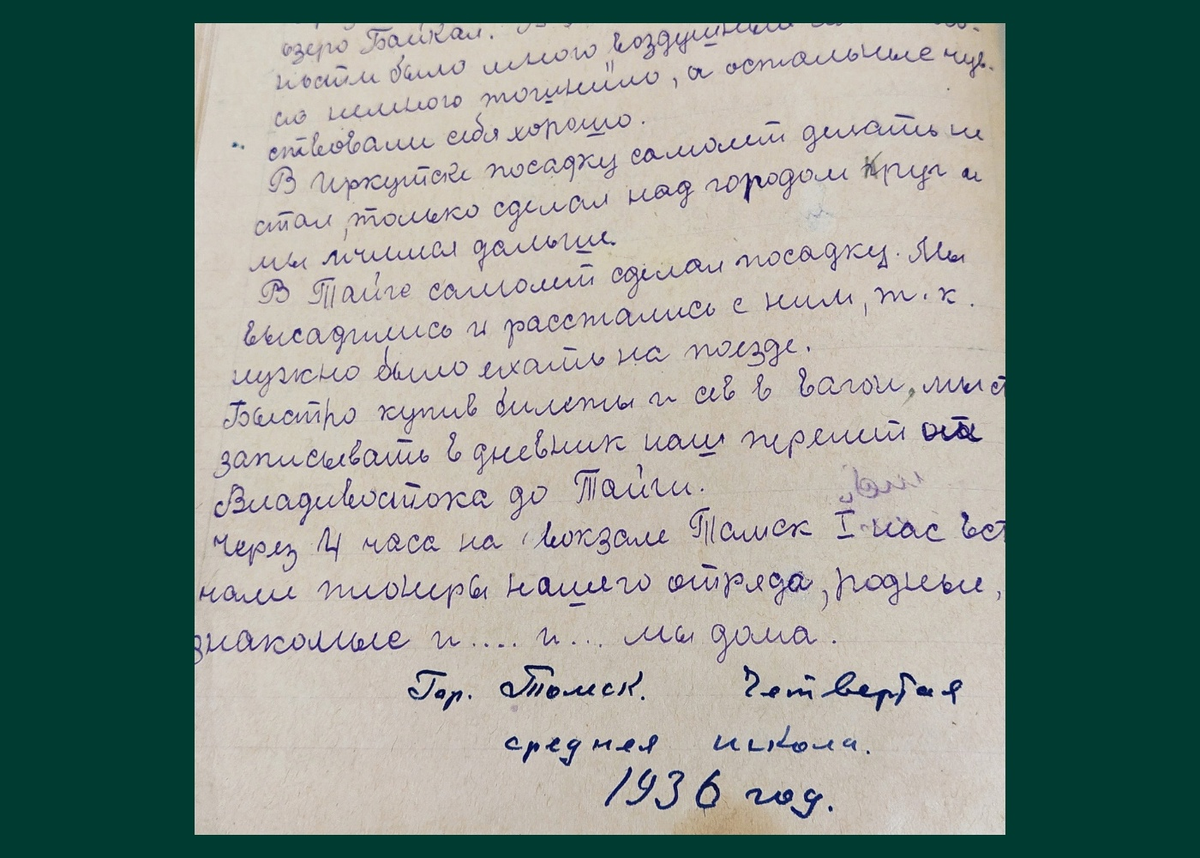 озеро Байкал. В
ности было много воздушных
ло немного тошнило, а остальные чув-
ствовали себя хорошо.
В Иркутске посадку самолет делать не
стал, только сделал над городом круг и
мы мчимся дальше.
В Тайге самолет сделал посадку. Мы
высадились и расстались с ним, т. к.
нужно было ехать на поезде.
Быстро купив билеты и сев в вагон, мы ст
записывать в дневник наш перелет от
Владивостока до Тайги.
Через 4 часа на вокзале Томск I нас вст
чали пионеры нашего отряда, родные,
знакомые и.... и... мы дома.
Гор. Томск. Четвертая
средняя школа.
1936 год.